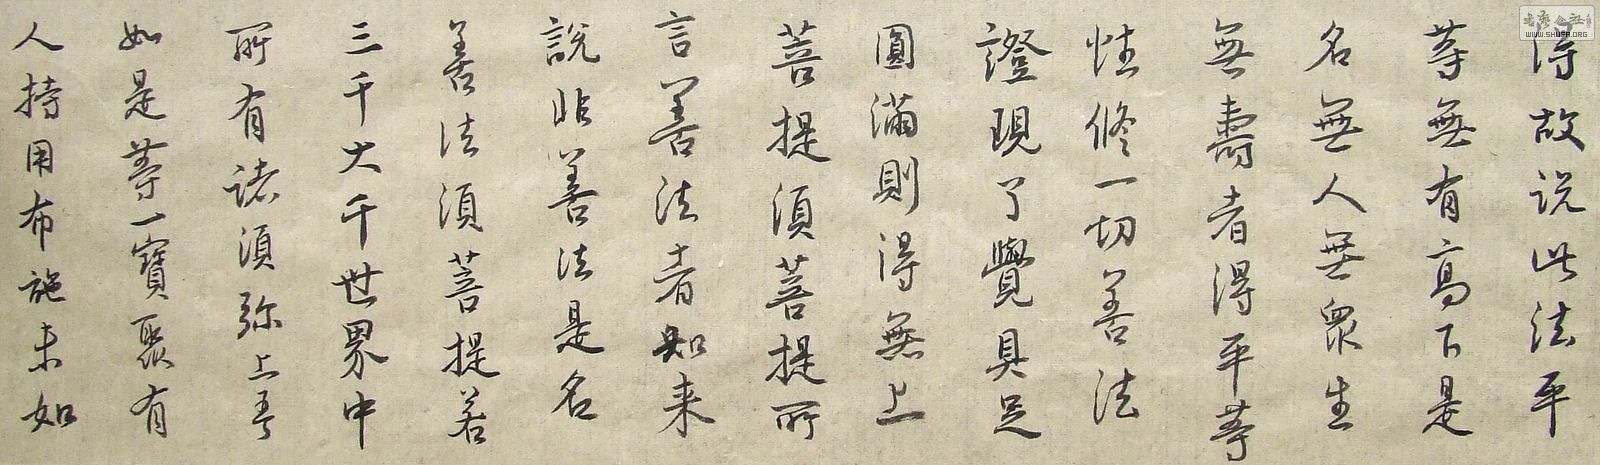 得故说此法平
等無有高下是
名無人無眾生
無壽者得平等
性修一切善法
證現了覺具足
圓滿則得無上
菩提須菩提所
言善法者如来
說非善法是名
善法須菩提若
三千大千世界中
所有诸須弥
如是等一寶聚有
人持用布施未如
书艺公社
WWW.SHUFA.ORG